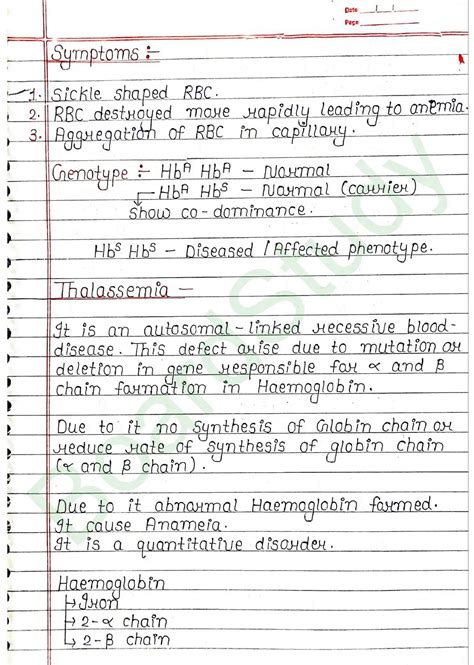 Date / /
Page
Symptoms :-
1. Sickle shaped RBC.
2. RBC destroyed more rapidly leading to anemia.
3. Aggregation of RBC in capillary.
Genotype :- Hbᴬ Hbᴬ – Normal
Hbᴬ Hbˢ – Normal (carrier)
show co-dominance.
Hbˢ Hbˢ – Diseased / Affected phenotype.
Thalassemia –
It is an autosomal-linked recessive blood-
disease. This defect arise due to mutation or
deletion in gene responsible for α and β
chain formation in Haemoglobin.
Due to it no synthesis of Globin chain or
reduce rate of synthesis of globin chain
(α and β chain).
Due to it abnormal Haemoglobin formed.
It cause Anameia.
It is a quantitative disorder.
Haemoglobin
↳ Iron
↳ 2-α chain
↳ 2-β chain
BoardStudy